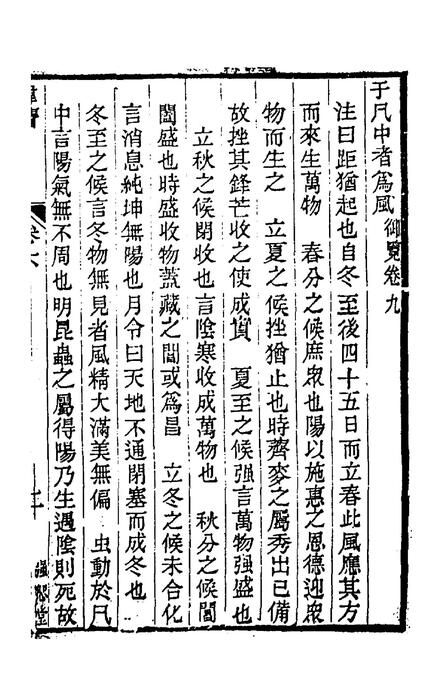 于凡中者爲風御覽卷九
注曰距猶起也自冬至後四十五日而立春此風應其方
而來生萬物　春分之候庶衆也陽以施惠之恩德迎衆
物而生之　立夏之候挫猶止也時薺麥之屬秀出已備
故挫其鋒芒收之使成實　夏至之候强言萬物强盛也
立秋之候閉收也言陰寒收成萬物也　秋分之候閶
闔盛也時盛收物蓋藏之閶或爲昌　立冬之候未合化
言消息純坤無陽也月令曰天地不通閉塞而成冬也
冬至之候言冬物無見者風精大滿美無偏　虫動於凡
中言陽氣無不周也明昆蟲之屬得陽乃生遇陰則死故
卷六
二